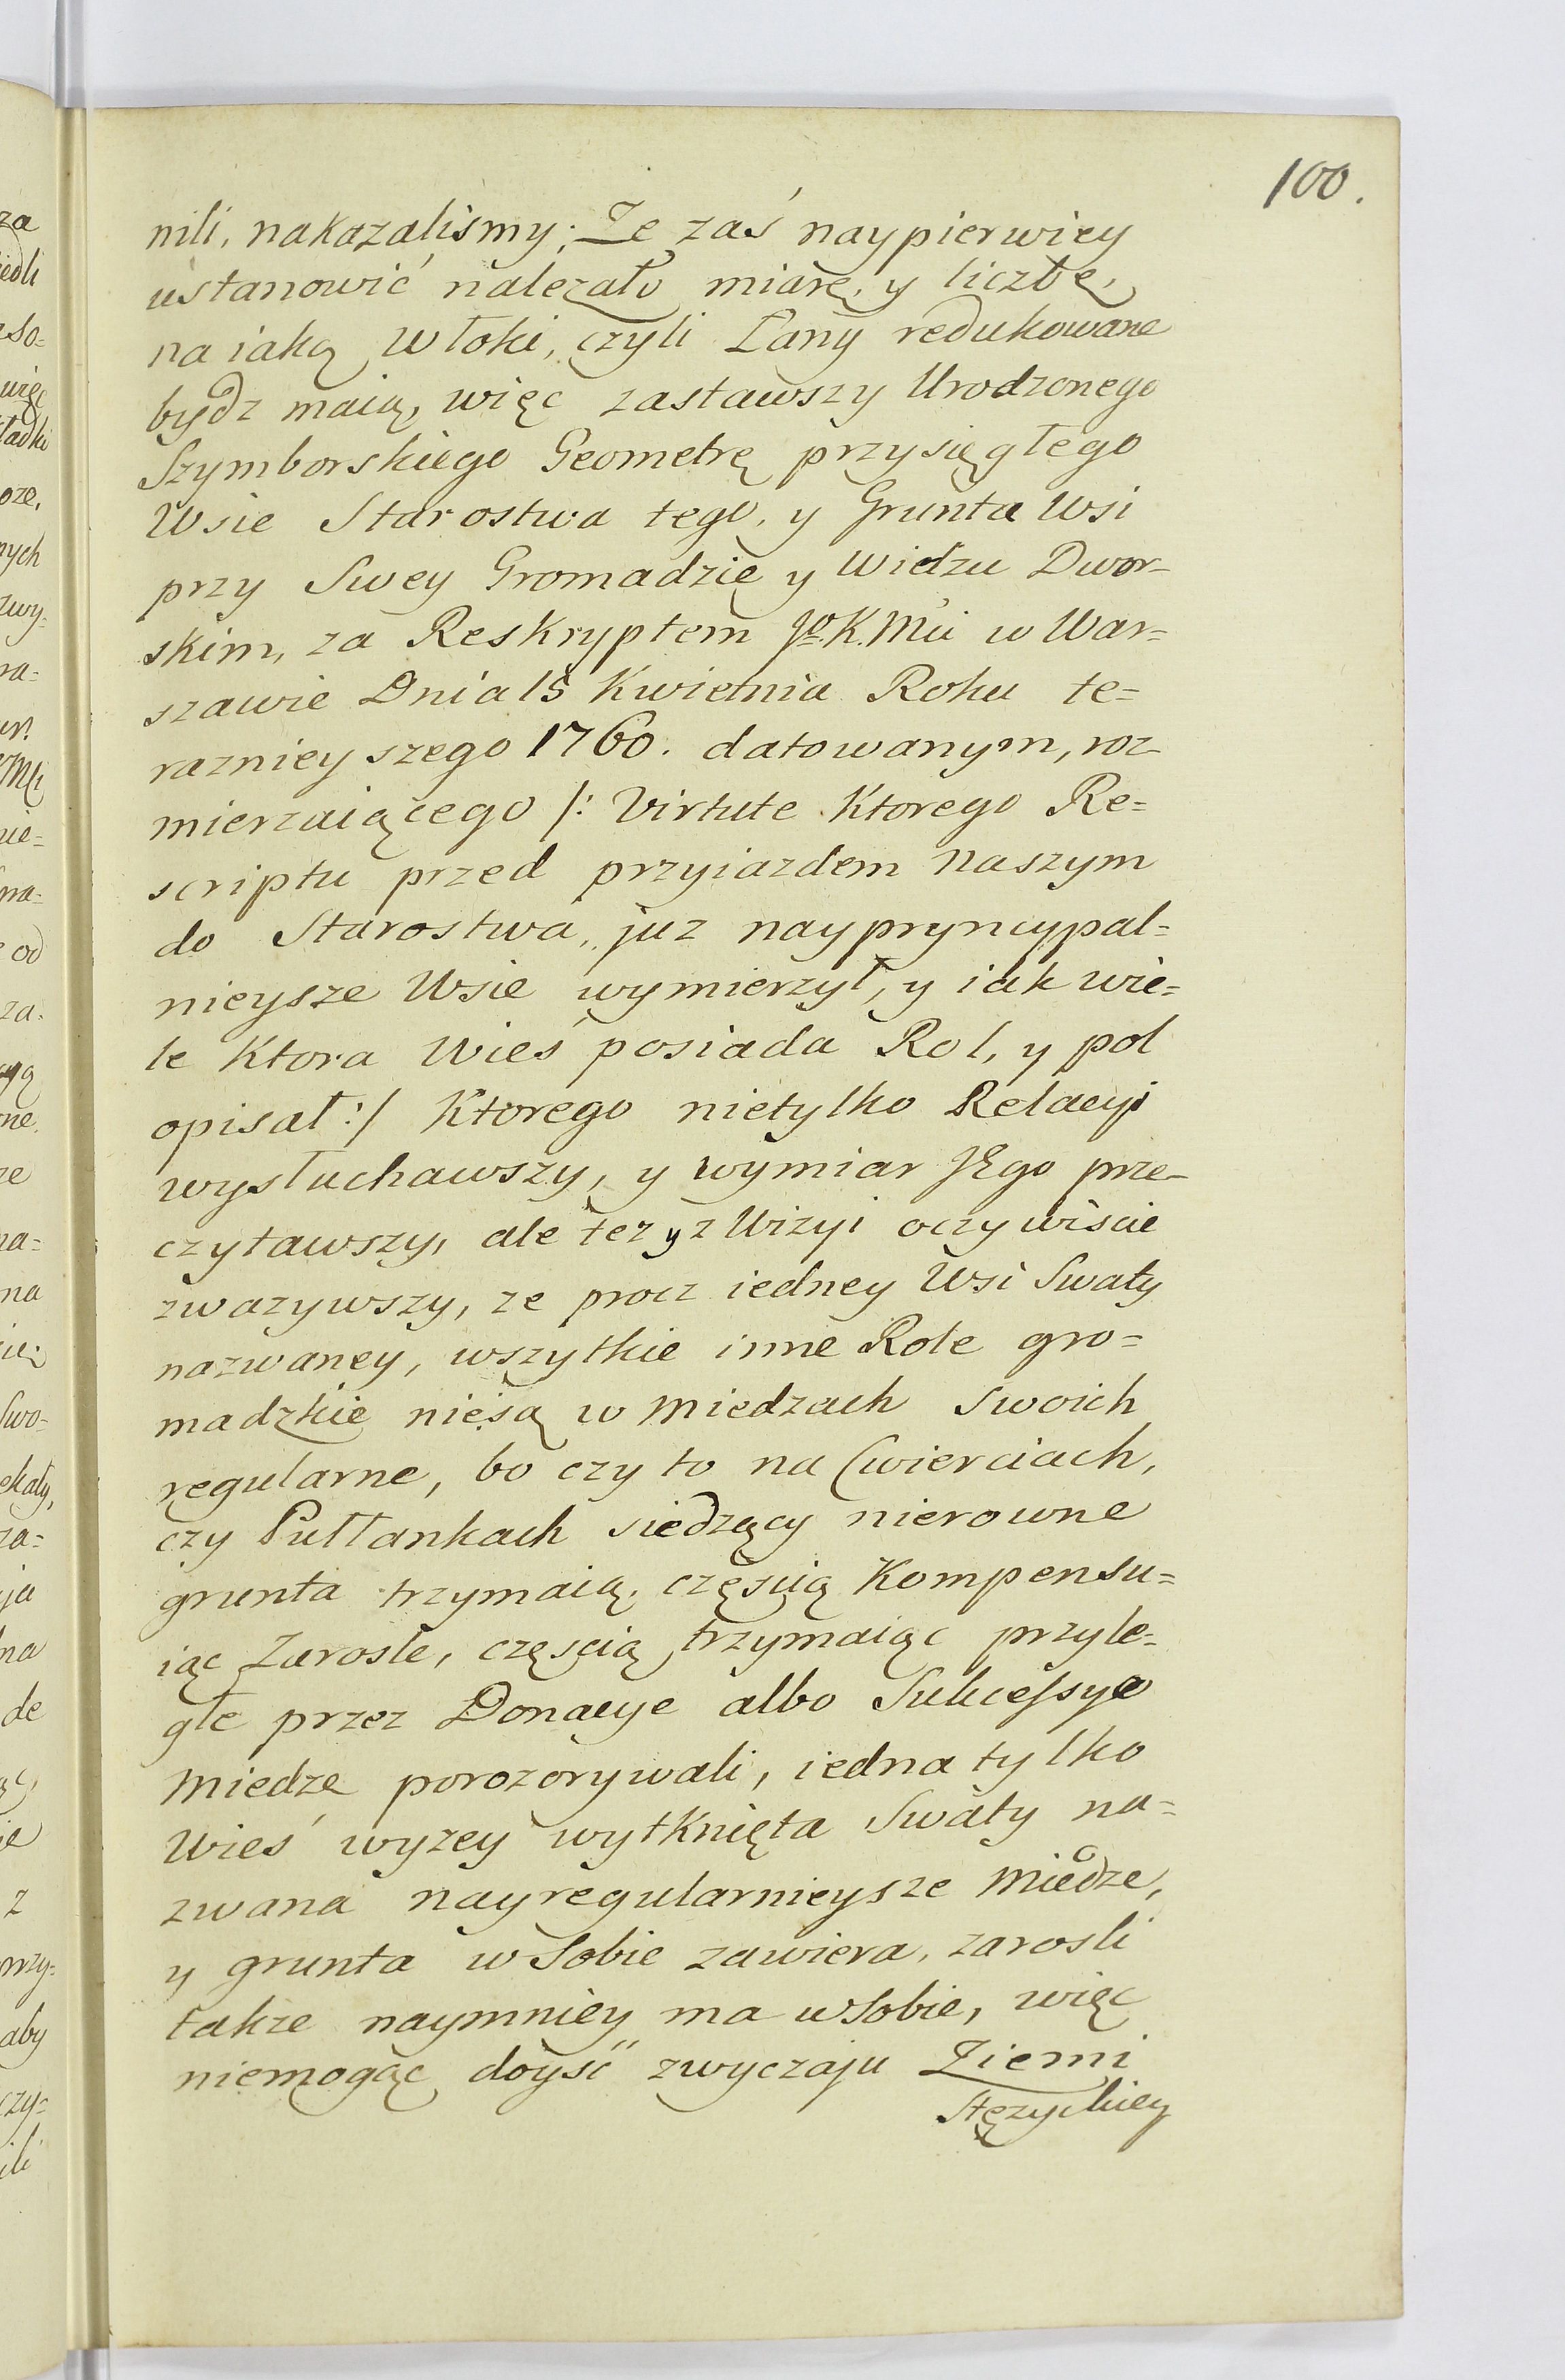 100.
nili, nakazalismy; Ze zaś naypierwiey
ustanowić nalezało miarę, y liczbę,
na iaką Włoki, czyli Łany redukowane
bydz maią, więc zastawszy Urodzonego
Szymborskiego Geometrę przysięgłego
Wsie Starostwa tego, y Grunta Wsi
przy Swey Gromadzie y Widzu Dwor-
skim, za Reskryptem Jo. K. Mći w War=
szawie Dnia 15 Kwietnia Roku te=
razniey szego 1760. datowanym, roz
mierzaiącego /: Virtute Ktorego Re=
scriptu przed przyiazdem naszym
do Starostwa, juz naypryncypal=
nieysze Wsie wymierzył, y iak wie=
le Ktora Wieś posiada Rol, y pol
opisał :/ Ktorego nietylko Relacyi
wysłuchawszy, y wymiar JEgo prze-
czytawszy, ale tez y z Wizyi oczywiscie
zwazywszy, ze procz iedney Wsi Swaty
nazwaney, wszytkie inne Role gro=
madzkie niesą w miedzach swoich
regularne, bo czy to na Cwierciach,
czy Pułłankach siedzący nierowne
grunta trzymaią, częscią Kompensu=
iąc Zarosle, częscią trzymaiąc przyle=
głe przez Donacye albo Sukcessye
miedze porozorywali, iedna tylko
Wieś wyzey wytknięta Swaty na=
zwana nayregularnieysze miedze,
y grunta w Sobie zawiera, zarosli
takze naymniey ma w Sobie, więc
niemogąc doyść zwyczaju Ziemi
Stęzyckiey
za
iedli
więc
ładki
oze,
nych
zwy=
na=
nie=
od
za
ne
na=
na
Swo=
ekały,
za=
ja
na
de
z
przy=
aby
czy=
ili